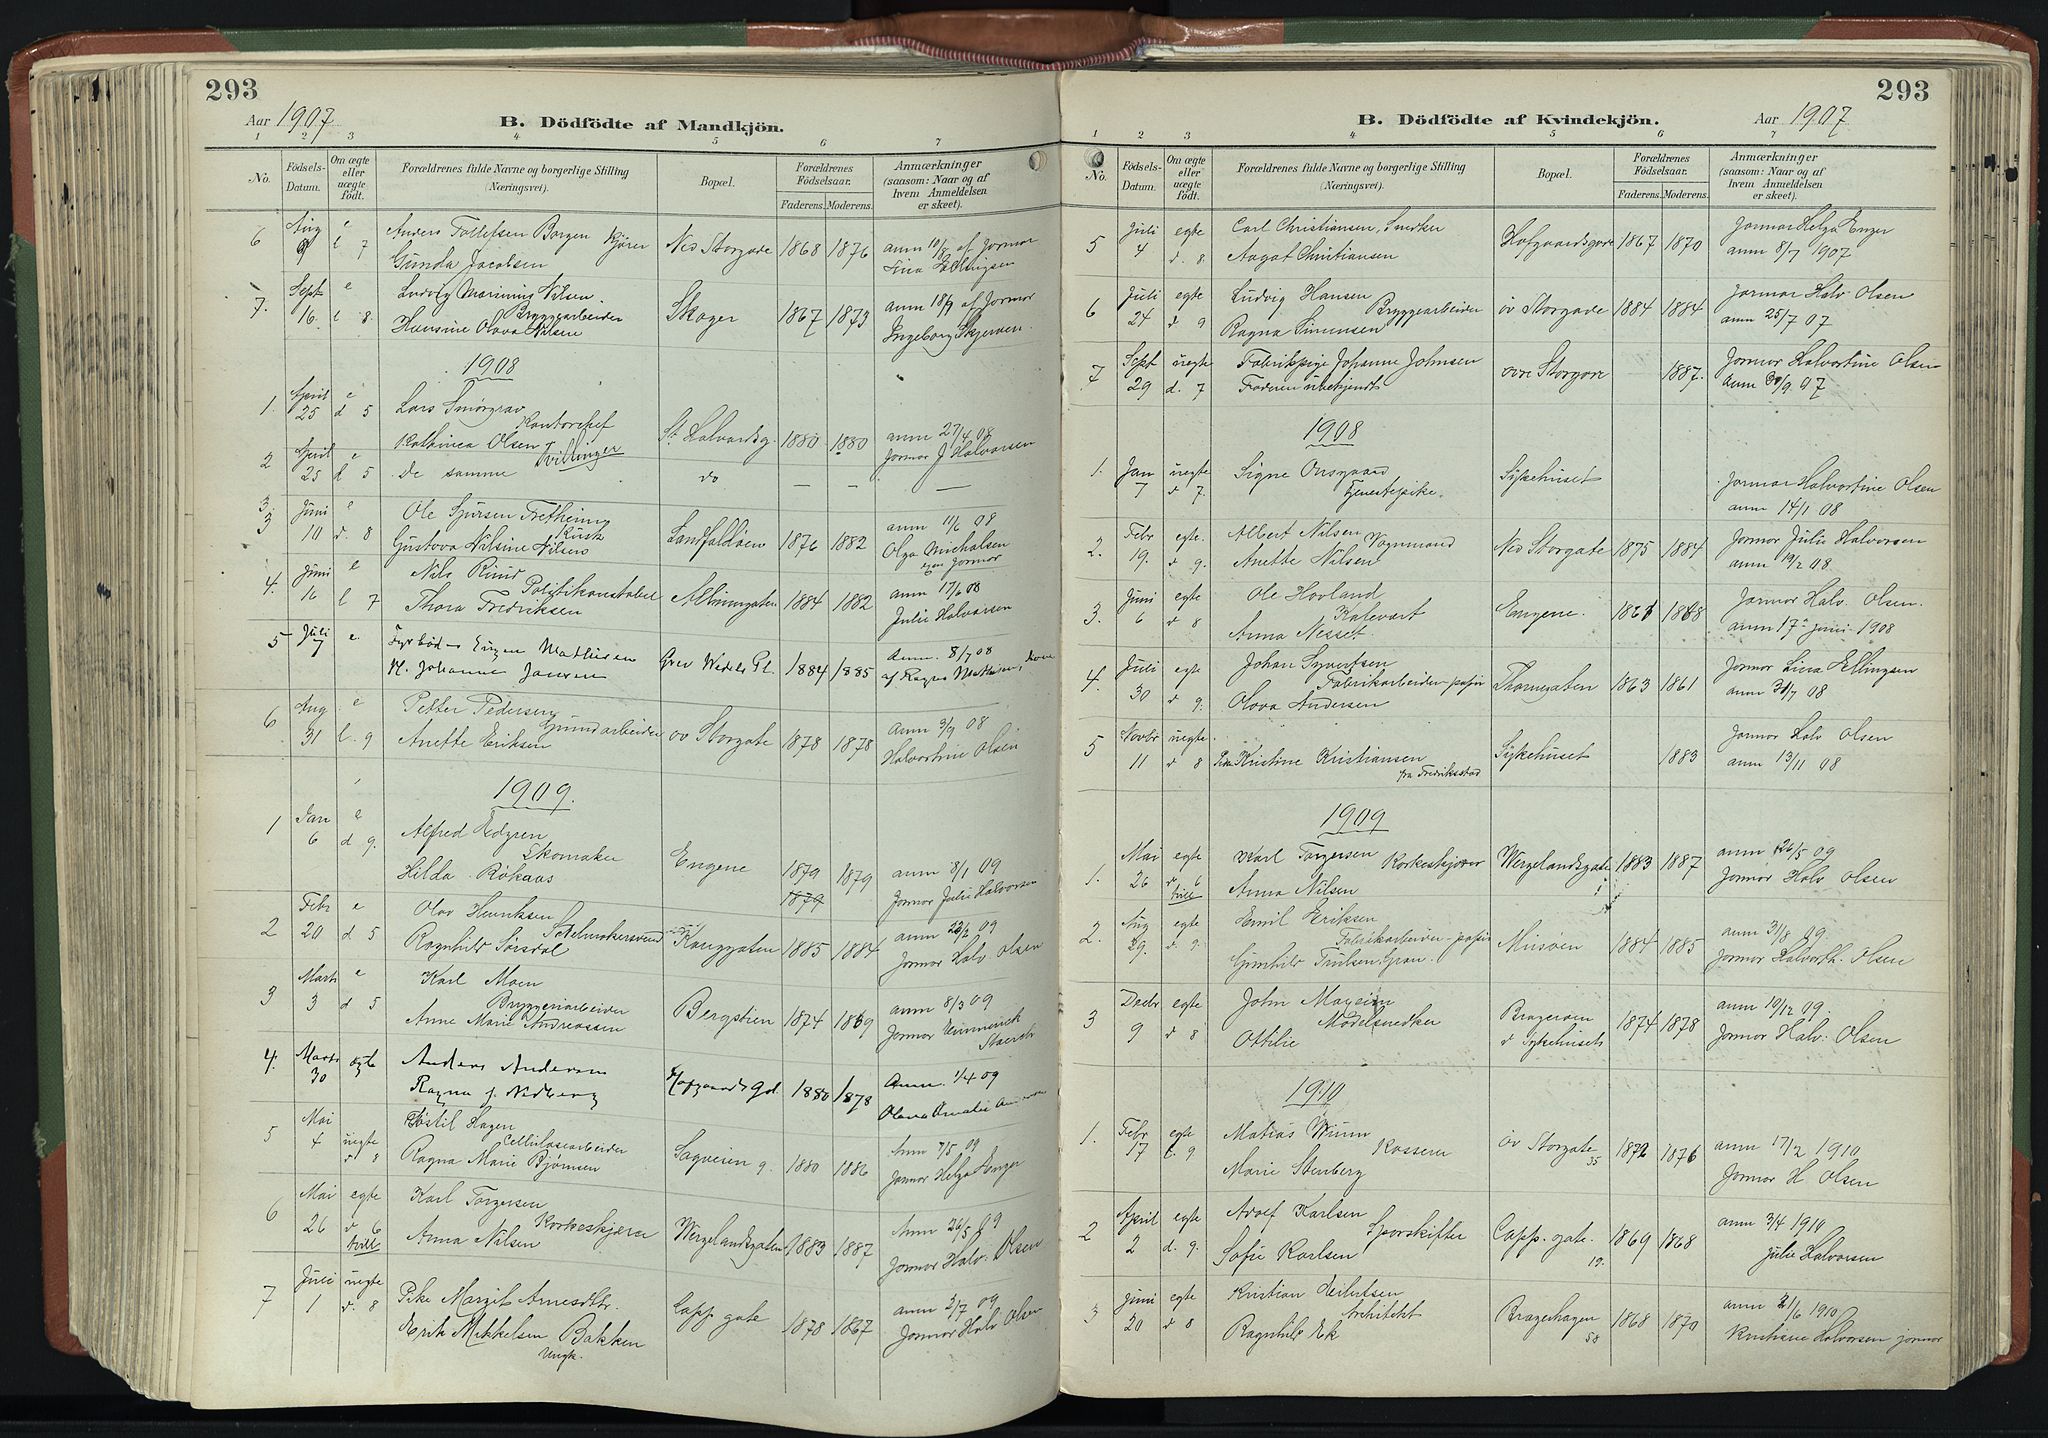 293
Aar 1907
B. Dödfödte af Mandkjön.
1 2 3 4 5 6 7
No.
Födsels-Datum.
Om ægte eller uægte født.
Forældrenes fulde Navne og borgerlige Stilling
(Næringsvei).
Bopæl.
Forældrenes Födselsaar.
Faderens. Moderens.
Anmærkninger
(saasom: Naar og af
hvem Anmeldelsen
er skeet).
6 Aug 9 e l 7 Anders Tollefsen Borgen Kjører Ned Storgade 1868 1876 anm 10/8 af Jormor
Gunda Jacobsen Lina Ellingsen
7. Sept 16. e l 8. Ludvig Marinius Nilsen. Skoger 1867 1873 anm 18/9 af Jormor
Bryggearbeider
Hansine Olava Nilsen Ingeborg Skjerven.
1908
1. April 25 e d 5 Lars Smørgrav
Kontorchef
Kathinca Olsen St Halvardsg. 1880 1880 anm 27/4 08
Tvillinger Jormor J Halvorsen
2 April 25 e d 5 De samme do — — —
3. 3 Juni 10 e d. 8 Ole Sjursen Fretheim
Kusk
Gustava Nilsine Nilsens Landfaldøen 1876 1882 anm 11/6 08
Olga Michalsen
egen Jormor
4. Juni 16 e l 7 Nils Ruud
Politikonstabel
Thora Fredriksen Albumgaten 1884 1882 anm 17/6 08
Julie Halvorsen
5 Juli 7 e. Fyrbød- Eugen Mathisen
H. Johanne Jansen Grev Wedels Pl. 1884 1885 Anm. 8/7 08
af Ragna Mathisen,
6 Aug 31 e l. 9 Petter Pedersen
Grundarbeider
Anette Eriksen øv Storgate 1878 1878 anm 3/9 08
Halvortine Olsen
1909.
1 Jan 6 e d 9. Alfred Edgren
Skomaker
Hilda Røkaas Engene 1879 1879 anm 8/1 09
1879 Jormor Julie Halvorsen
2 Febr 20 e d 5 Olav Henriksen
Sadelmakersvend
Ragnhild Sørsdal Konggaten 1885 1884 anm 22/2 09
Jormor Halv Olsen
3 Marts 3 e d 5 Karl Moen
Bryggeriarbeider
Anne Marie Andreassen Bergstien 1874 1869 anm 8/3 09
Jormor
4. Marts 30 egte Anders Andersen
Ragna f. Nedberg Hofgaards gd. 1880 1878 Anm. 1/4 09
Olava Amalie
5 Mai 4 uegte d 8 Kostil Hagen
Celluloscarbeider
Ragna Marie Bjørnsen Sagveien 9. 1880 1886 Anm 7/5 09
Jormor Helga Enger
6 Mai 26 egte d 6 tvill Karl Torgersen
Korkeskjærer
Anna Nilsen Wergelandsgaten 1883 1887 Anm 26/5 09
Jormor Halv. Olsen
7 Juli 1 uegte d. 8 Pike Margit Arnesdtr.
Erik Mikkelsen Bakken Capp. gate 1878 1867 anm 2/7 09
Ungk. Jormor Halv Olsen
293
B. Dödfödte af Kvindekjön.
Aar 1907
1 2 3 4 5 6 7
No.
Födsels-Datum.
Om ægte eller uægte født.
Forældrenes fulde Navne og borgerlige Stilling
(Næringsvei).
Bopæl.
Forældrenes Födselsaar.
Faderens. Moderens.
Anmærkninger
(saasom: Naar og af
hvem Anmeldelsen
er skeet).
5 Juli 4 egte d. 8 Carl Christiansen, Snedker Hofgaardsgade 1867 1870 Jormor Helga Enger
Aagot Christiansen anm 8/7 1907
6 Juli 24 egte d 9 Ludvig Hansen
Bryggearbeider
Ragna Simensen øv Storgade 1884 1884 Jormor Halv. Olsen
anm 25/7 07
7 Sept 29 uegte d. 7 Fabrikpige Johanne Johnsen
Faderen ubekjendt øvre Storgade 1887. Jormor Halvortine Olsen
anm 30/9 07
1908
1. Jan 7 uegte d 7. Signe Onsgaard
Tjenestepike. Sykehuset Jormor Halvortine Olsen
anm 14/1 08
2. Febr 19. egte. d 9. Albert Nilsen
Vognmand
Anette Nilsen Ned Storgate 1875 1884 Jormor Julie Halvorsen
anm 19/2 08
3. Juni 6 egte d 8 Ole Hovland
Anna Nesset. Engene. 1868 Jormor Halv. Olsen.
anm 17de juni 1908
4. Juli 30 egte d 9. Johan Syvertsen
Fabrikarbeider-papir
Olava Andersen Thornegaten 1863 1861 Jormor Lina Ellingsen
anm 31/7 08
5 Novbr 11 uegte d 8 Pike Kristine Kristiansen
fra Fredriksstad Sykehuset 1883 Jormor Halv Olsen
anm 13/11 08
1909
1. Mai 26 egte d 6 tvill Karl Torgersen Korkeskjærer
Anna Nilsen Wergelandsgate 1883 1887 anm 26/5 09
Jormor Halv Olsen
2. Aug 29. egte d. 9. Emil Eriksen
Fabrikarbeider-papir
Gunhild Trulsen, Gran. Miisøen 1884 1885 anm 31/8 09.
Jormor Halvorth. Olsen
3 Decbr 9 egte d 8 John
Modelsnedker
Ottilie Bragerøen 1874 1878 anm 10/12 09.
d Sykehusets Jormor Halv. Olsen
1910
1. Febr 17 egte l. 9 Matias Wium
Kasserer
Marie Stenberg øv Storgate 35 1872 1876 anm 17/2 1910
Jormor H. Olsen
2 April 2 egte d. 9. Adolf Karlsen
Sporskifter
Sofie Karlsen Capp. gate. 19. 1869 1868 anm 3/4 1910
Julie Halvorsen
3 Juni 20 egte d 8 Kristian Eilertsen
Architekt
Ragnhild Ek Bragerhagen 58 1868 1870 anm 21/6 1910
Kristiane Halvorsen jormor